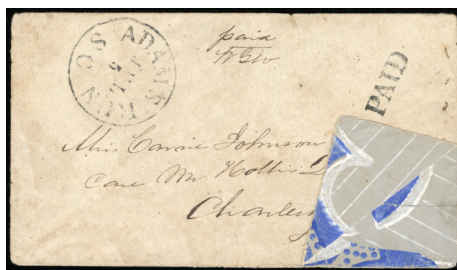 ADAMS RUN S.C.
paid
PAID
Miss Carrie Johnson
Care Mr Hollis
Charles